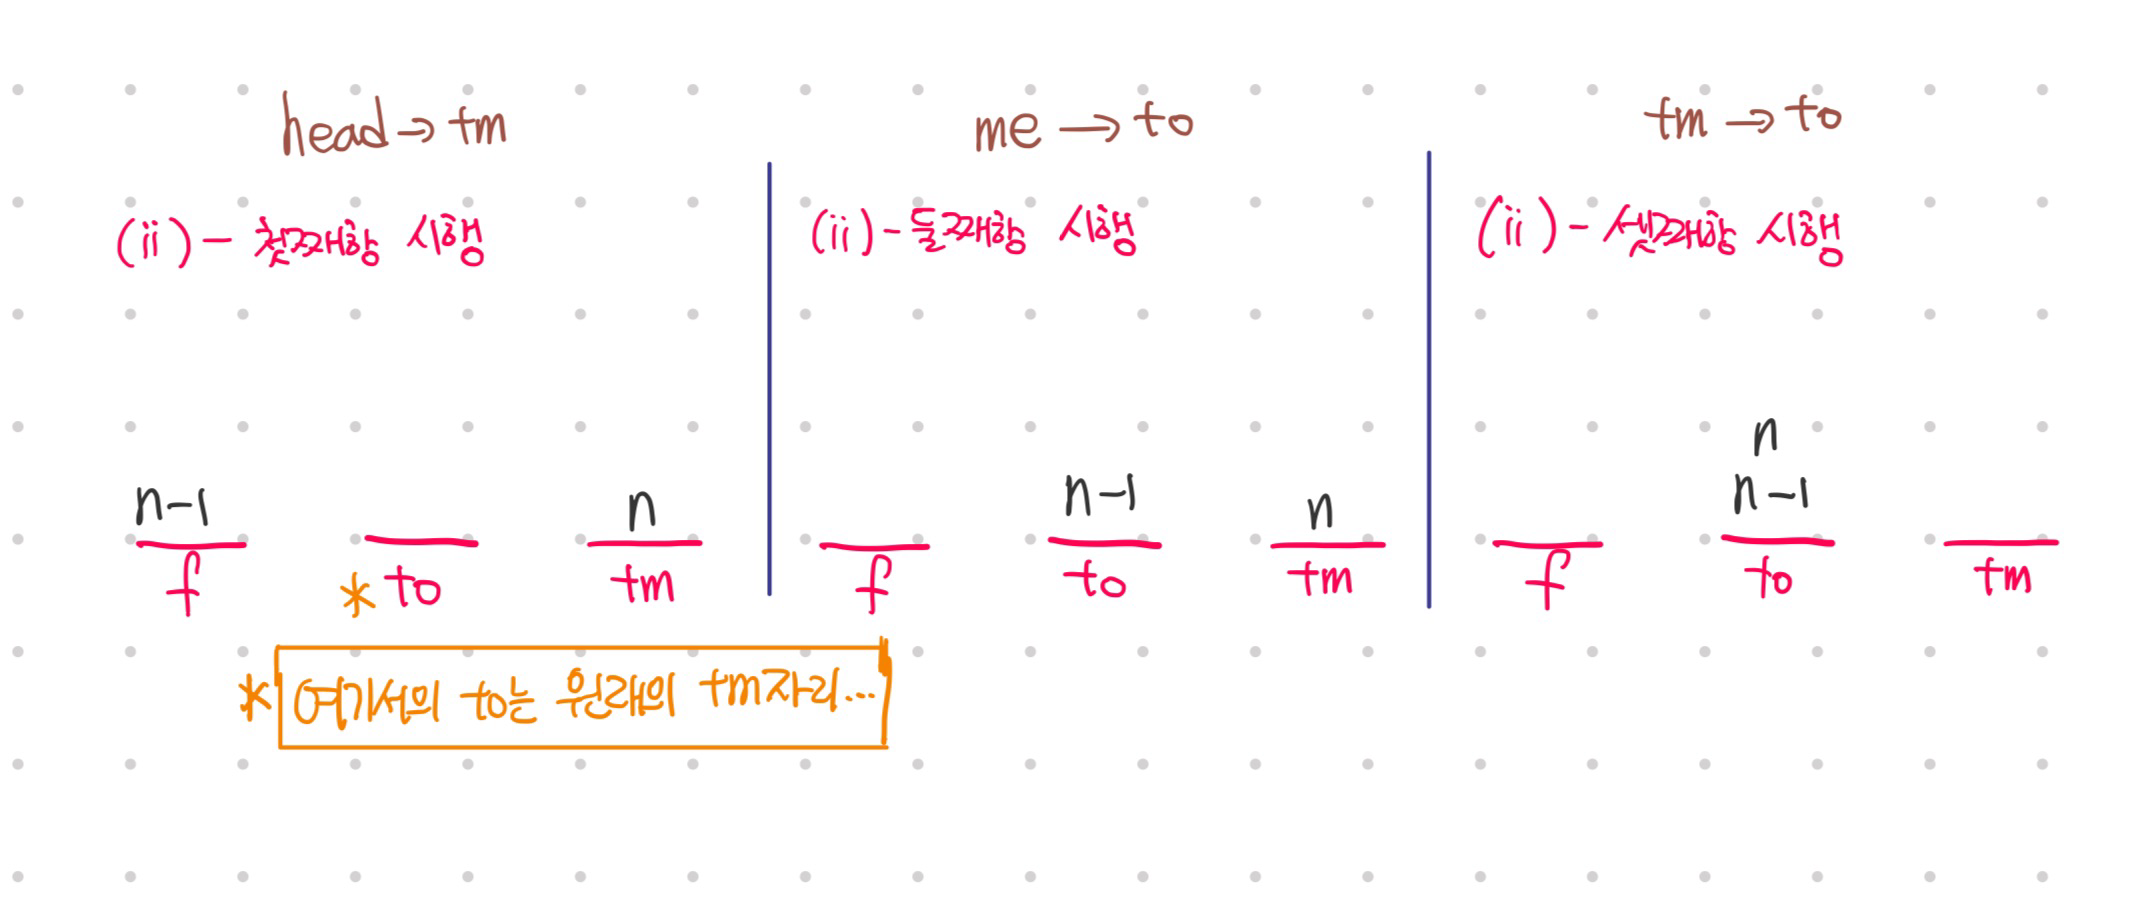 head → tm
(ii) - 첫째항 시행
n-1
n
f
* to
tm
* 여기서의 to는 원래의 tm자리...
me → to
(ii) - 둘째항 시행
n-1
n
f
to
tm
tm → to
(ii) - 셋째항 시행
n
n-1
f
to
tm